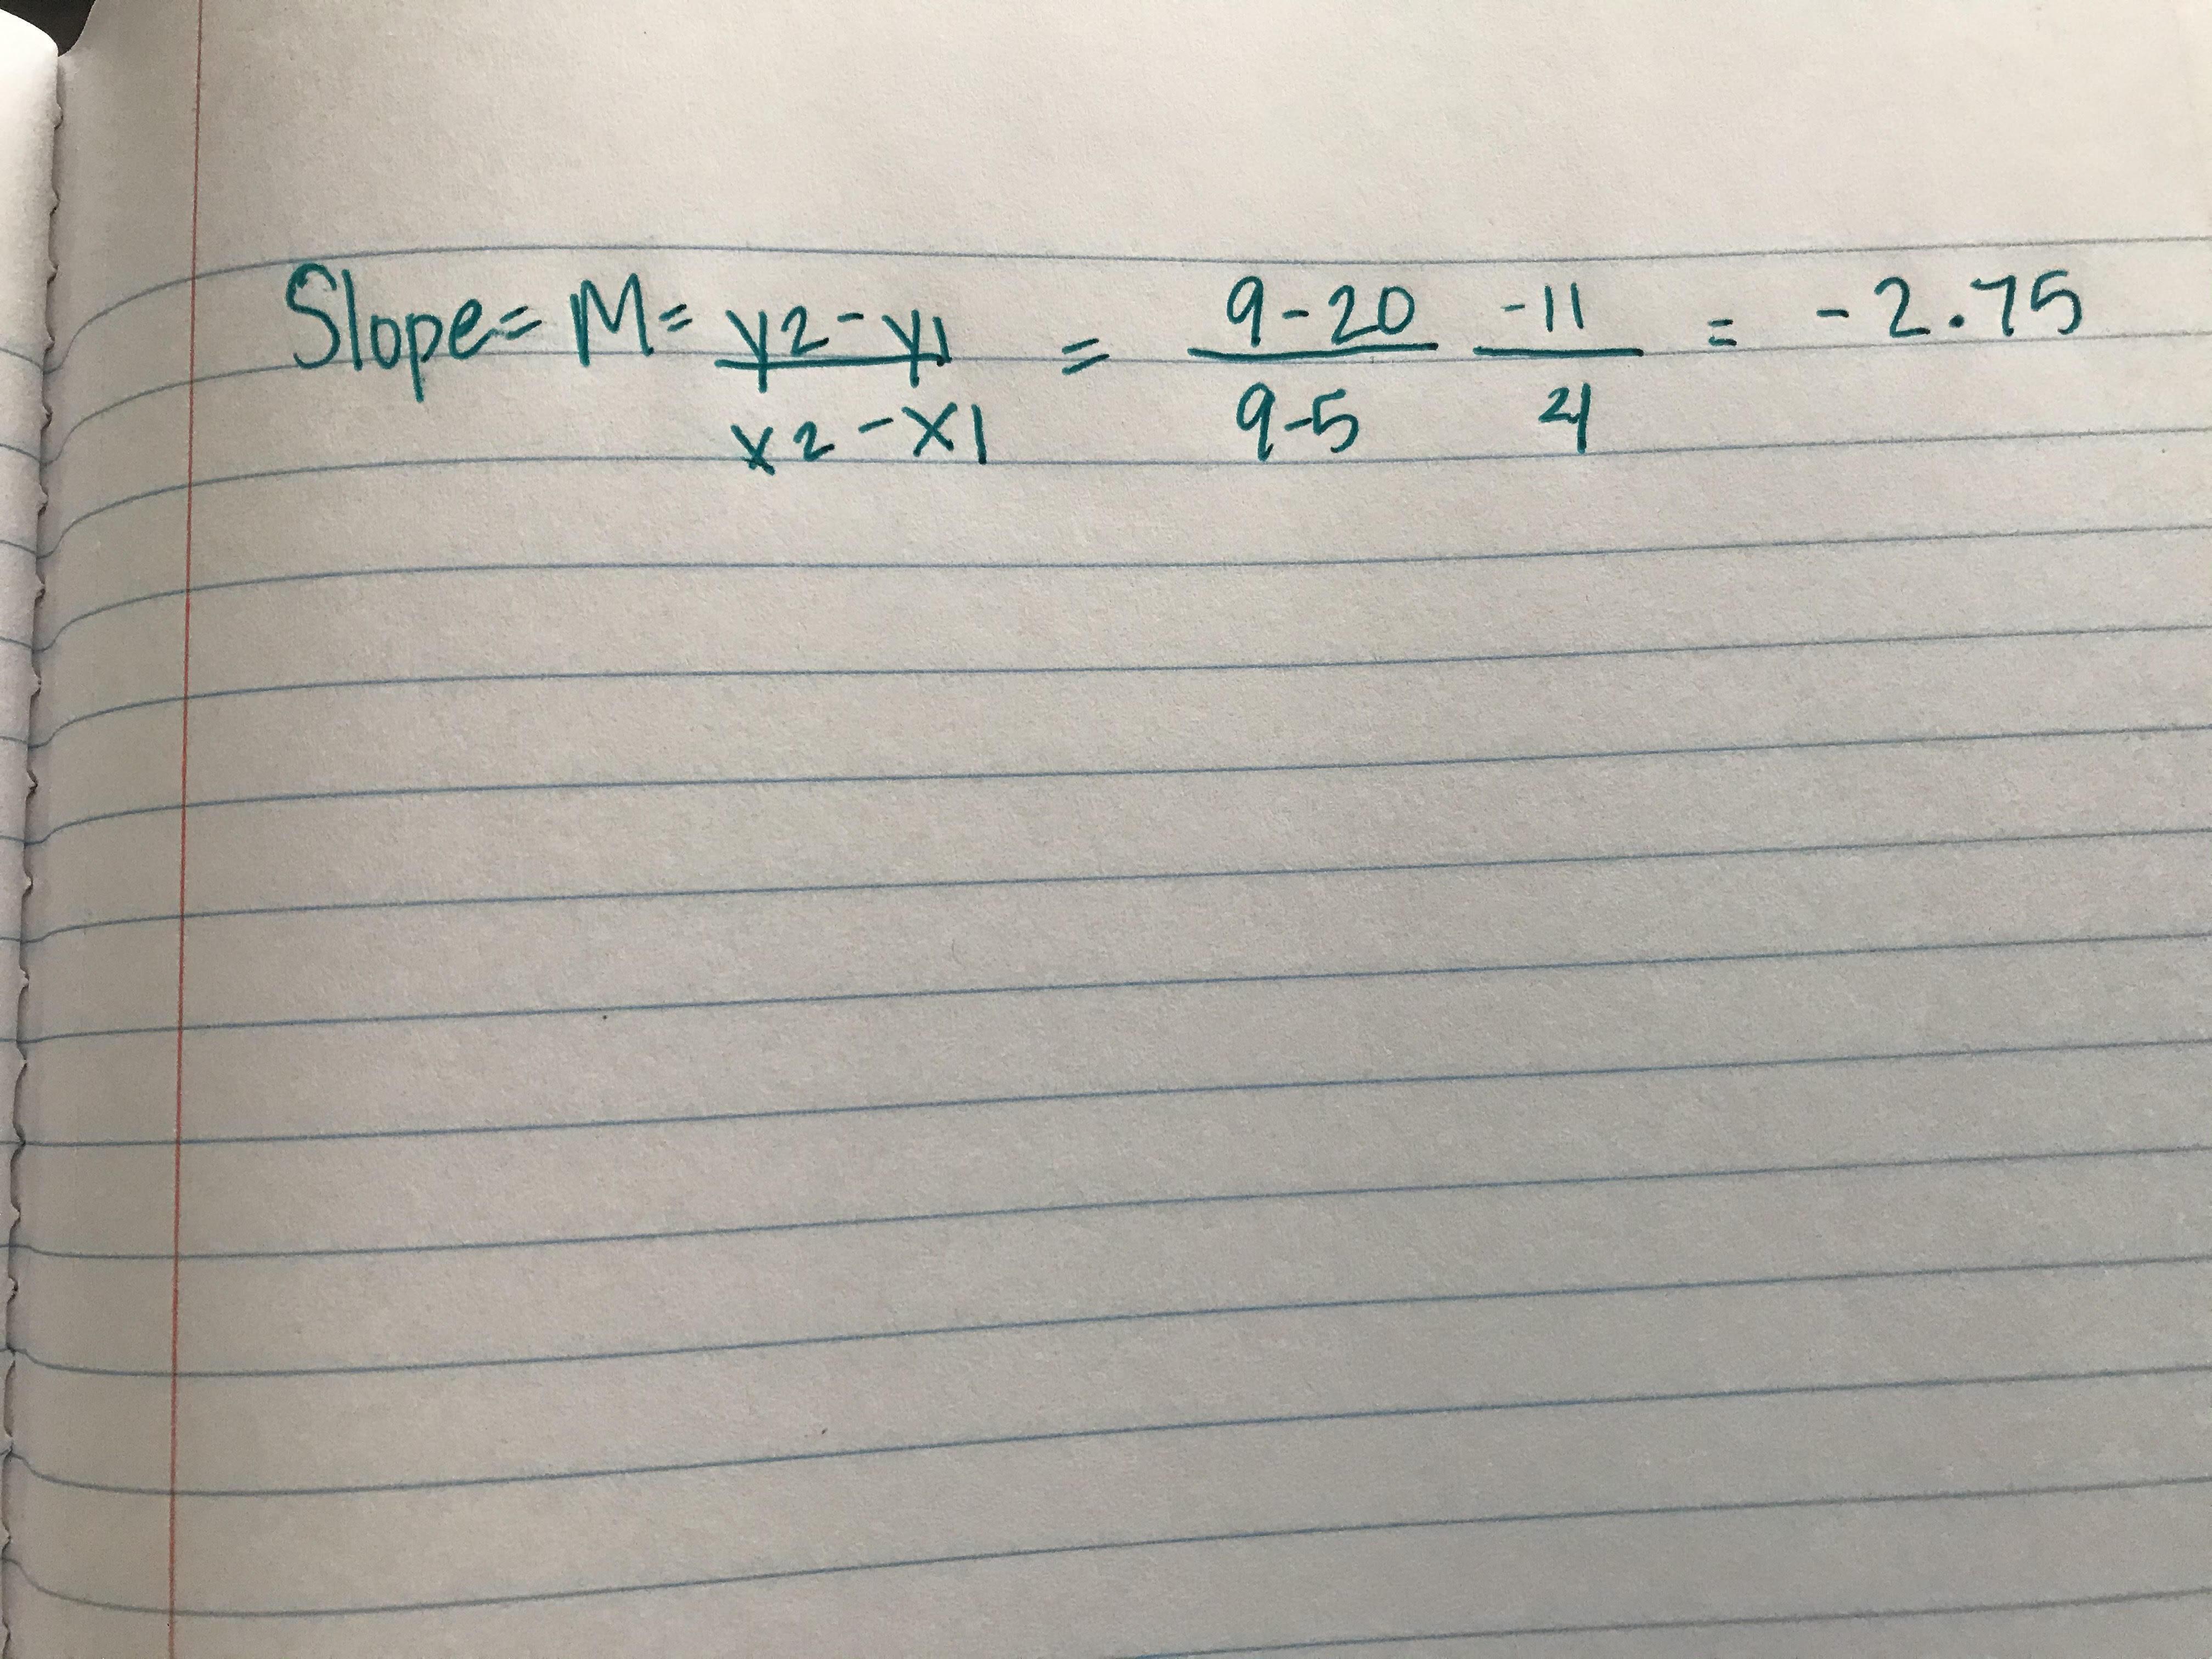 Slope = M = y2 - y1 / x2 - x1 = 9 - 20 / 9 - 5 -11 / 4 = -2.75